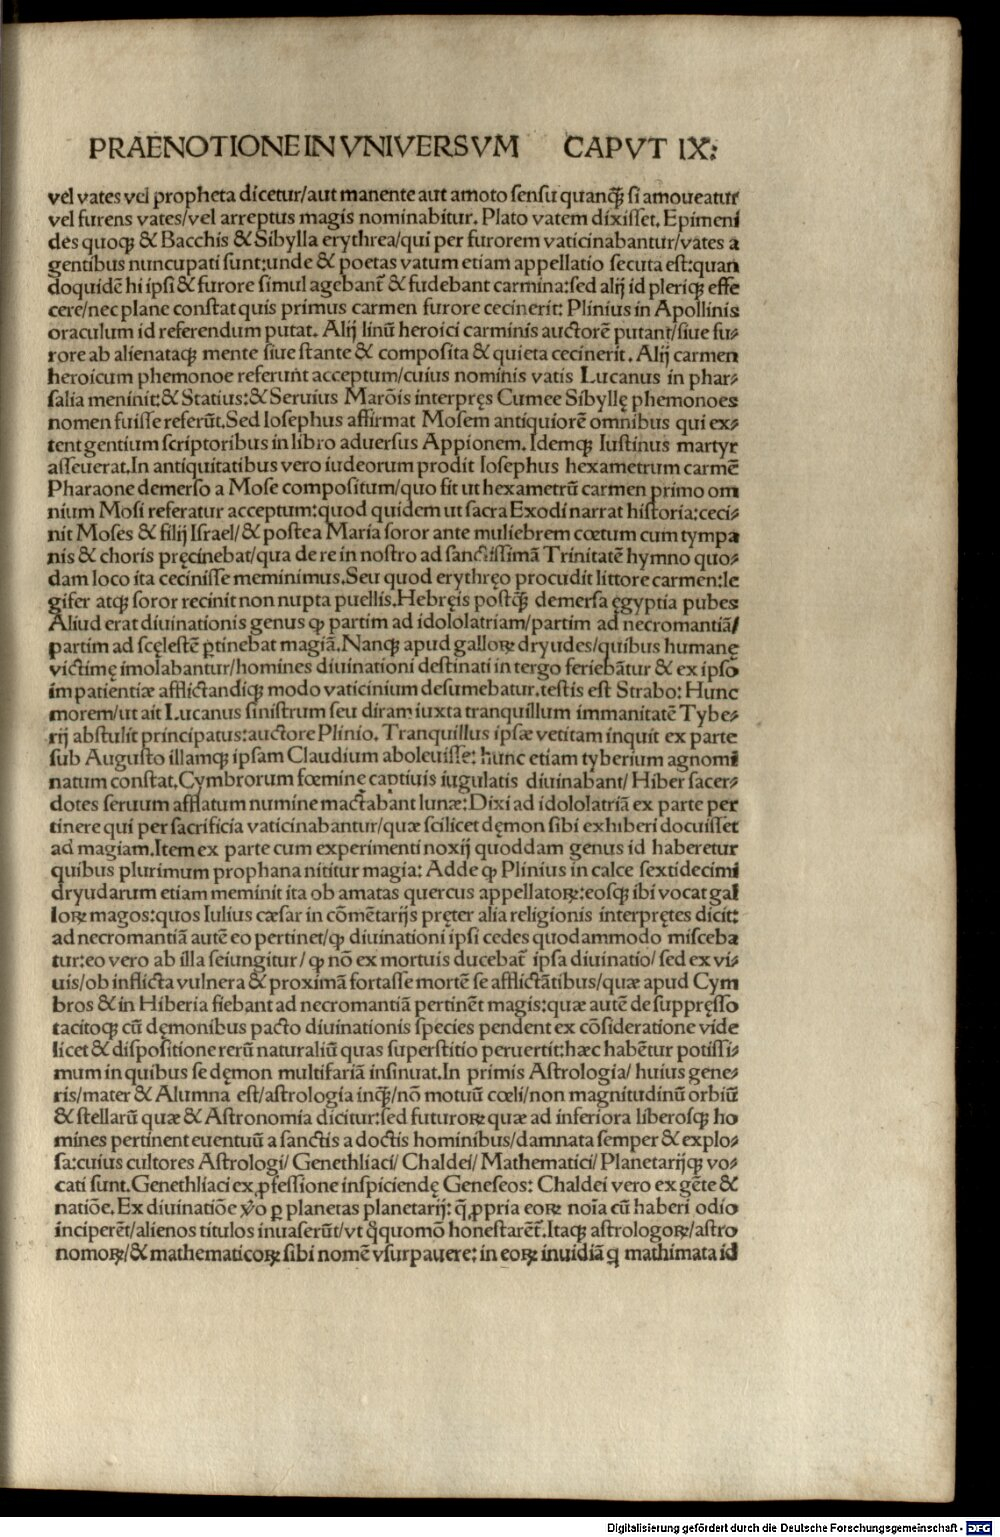 PRAENOTIONE IN VNIVERSVM CAPVT IX:
vel vates vel propheta dicetur/aut manente aut amoto sensu quanq̃ꝫ si amoueatur
vel furens vates/vel arreptus magis nominabitur. Plato vatem dixisset. Epimeni
des quoqꝫ & Bacchis & Sibylla erythrea/qui per furorem vaticinabantur/vates a
gentibus nuncupati sunt:unde & poetas vatum etiam appellatio secuta est:quan
doquidē hi ipsi & furore simul agebant̃ & fudebant carmina:sed alij id pleriqꝫ effe
cere/nec plane constat quis primus carmen furore cecinerit: Plinius in Apollinis
oraculum id referendum putat. Alij linū heroici carminis auctorē putant/siue fu⸗
rore ab alienataqꝫ mente siue stante & composita & quieta cecinerit. Alij carmen
heroicum phemonoe referunt acceptum/cuius nominis vatis Lucanus in phar⸗
salia meninit:& Statius:& Seruius Marōis interpręs Cumee Sibyllę phemonoes
nomen fuisse referūt.Sed Iosephus affirmat Mosem antiquiorē omnibus qui ex⸗
tent gentium scriptoribus in libro aduersus Appionem. Idemqꝫ Iustinus martyr
asseuerat.In antiquitatibus vero iudeorum prodit Iosephus hexametrum carmē
Pharaone demerso a Mose compositum/quo fit ut hexametrū carmen primo om
nium Mosi referatur acceptum:quod quidem ut sacra Exodi narrat historia:ceci⸗
nit Moses & filij Israel/& postea Maria soror ante muliebrem cœtum cum tympa
nis & choris pręcinebat/qua de re in nostro ad sanctissimā Trinitatē hymno quo⸗
dam loco ita cecinisse meminimus.Seu quod erythręo procudit littore carmen:le
gifer atqꝫ soror recinit non nupta puellis.Hebręis postq̃ꝫ demersa ęgyptia pubes
Aliud erat diuinationis genus ꝙ partim ad idololatriam/partim ad necromantiā/
partim ad scęlestē ꝑtinebat magiā.Nanqꝫ apud galloꝝ dryudes/quibus humanę
victimę imolabantur/homines diuinationi destinati in tergo feriebātur & ex ipso
impatientiæ afflictandiqꝫ modo vaticinium desumebatur.testis est Strabo: Hunc
morem/ut ait Lucanus sinistrum seu diram iuxta tranquillum immanitatē Tybe⸗
rij abstulit principatus:auctore Plinio. Tranquillus ipsæ vetitam inquit ex parte
sub Augusto illamqꝫ ipsam Claudium aboleuisse: hunc etiam tyberium agnomi
natum constat.Cymbrorum fœminę captiuis iugulatis diuinabant/ Hiber sacer⸗
dotes seruum afflatum numine mactabant lunæ:Dixi ad idololatriā ex parte per
tinere qui per sacrificia vaticinabantur/quæ scilicet dęmon sibi exhiberi docuisset
ad magiam.Item ex parte cum experimenti noxij quoddam genus id haberetur
quibus plurimum prophana nititur magia: Adde ꝙ Plinius in calce sextidecimi
dryudarum etiam meminit ita ob amatas quercus appellatoꝝ:eosqꝫ ibi vocat gal
loꝝ magos:quos Iulius cæsar in cōmētarijs pręter alia religionis interpretes dicit:
ad necromantiā autē eo pertinet/ꝙ diuinationi ipsi cedes quodammodo misceba
tur:eo vero ab illa seiungitur/ ꝙ nō ex mortuis ducebat̃ ipsa diuinatio/ sed ex vi⸗
uis/ob inflicta vulnera & proximā fortasse mortē se afflictātibus/quæ apud Cym
bros & in Hiberia fiebant ad necromantiā pertinēt magis:quæ autē de suppręsso
tacitoqꝫ cū dęmonibus pacto diuinationis species pendent ex cōsideratione vide
licet & dispositione rerū naturaliū quas superstitio peruertit:hæc habētur potissi⸗
mum in quibus se dęmon multifariā insinuat.In primis Astrologia/ huius gene⸗
ris/mater & Alumna est/astrologia inq̃ꝫ/nō motuū cœli/non magnitudinū orbiū
& stellarū quæ & Astronomia dicitur:sed futuroꝝ quæ ad inferiora liberosqꝫ ho
mines pertinent euentuū a sanctis a doctis hominibus/damnata semper & explo⸗
sa:cuius cultores Astrologi/ Genethliaci/ Chaldei/ Mathematici/ Planetarijqꝫ vo⸗
cati sunt.Genethliaci ex ꝓfessione inspiciendę Geneseos: Chaldei vero ex gēte &
natiōe. Ex diuinatiōe v̊o ꝑ planetas planetarij: q̃ ꝓpria eoꝝ noīa cū haberi odio
inciperēt/alienos titulos inuaserūt/vt q̊quomō honestarēt̃.Itaqꝫ astrologoꝝ/astro
nomoꝝ/& mathematicoꝝ sibi nomē vsurpauere: in eoꝝ inuidiā q mathimata id
Digitalisierung gefördert durch die Deutsche Forschungsgemeinschaft - DFG